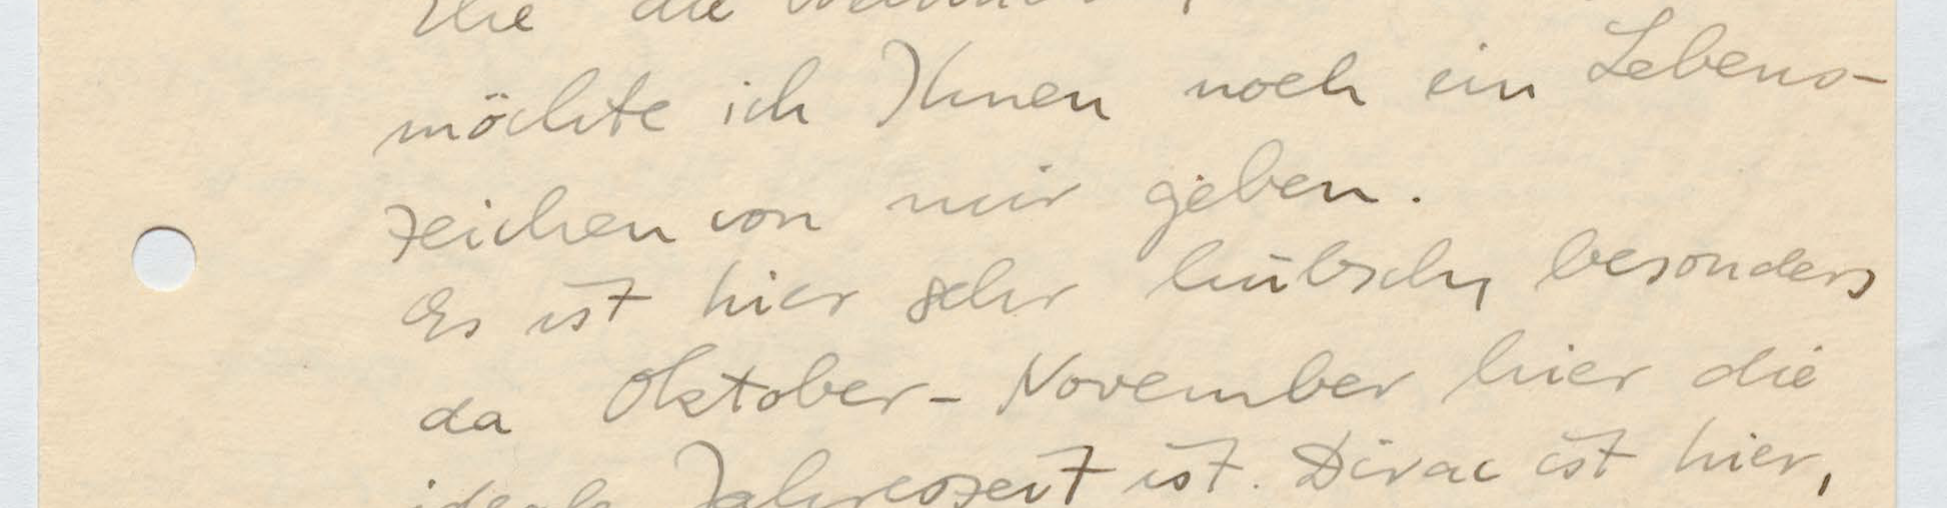 Ehe die
möchte ich Ihnen noch ein Lebens-
zeichen von mir geben.
Es ist hier sehr hübsch, besonders
da Oktober - November hier die
ideale Jahreszeit ist. Dirac ist hier,